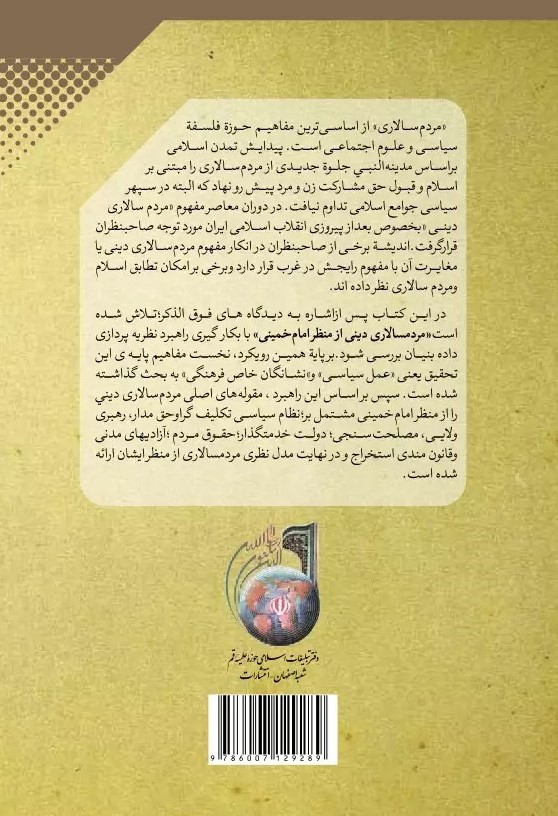 «مردم‌سالاری» از اساسی‌ترین مفاهیم حوزۀ فلسفۀ
سیاسی و علوم اجتماعی است. پیدایش تمدن اسلامی
براساس مدینه‌النبي جلوۀ جدیدی از مردم‌سالاری را مبتنی بر
اسلام و قبول حق مشارکت زن و مرد پیش رو نهاد که البته در سپهر
سیاسی جوامع اسلامی تداوم نیافت. در دوران معاصر مفهوم «مردم سالاری
دینی» بخصوص بعداز پیروزی انقلاب اسلامی ایران مورد توجه صاحبنظران
قرارگرفت.اندیشۀ برخی از صاحبنظران در انکار مفهوم مردم‌سالاری دینی یا
مغایرت آن با مفهوم رایجش در غرب قرار دارد وبرخی بر امکان تطابق اسلام
ومردم سالاری نظر داده اند.
در این کتاب پس ازاشاره به دیدگاه های فوق الذکر؛تلاش شده
است«مردمسالاری دینی از منظر امام خمینی» با بکار گیری راهبرد نظریه پردازی
داده بنیان بررسی شود.بر پایۀ همین رویکرد، نخست مفاهیم پایه ی این
تحقیق یعنی «عمل سیاسی» و«نشانگان خاص فرهنگی» به بحث گذاشته
شده است. سپس بر اساس این راهبرد ، مقوله‌های اصلی مردم‌سالاری دیني
را از منظر امام خمینی مشتمل بر؛نظام سیاسی تکلیف گراوحق مدار، رهبری
ولایی، مصلحت‌سنجی؛ دولت خدمتگذار؛حقوق مردم ؛آزادیهای مدنی
وقانون مندی استخراج و در نهایت مدل نظری مردمسالاری از منظر ایشان ارائه
شده است.
دفتر تبلیغات اسلامی حوزه علمیه قم
شعبه اصفهان - انتشارات
9 786007 129289